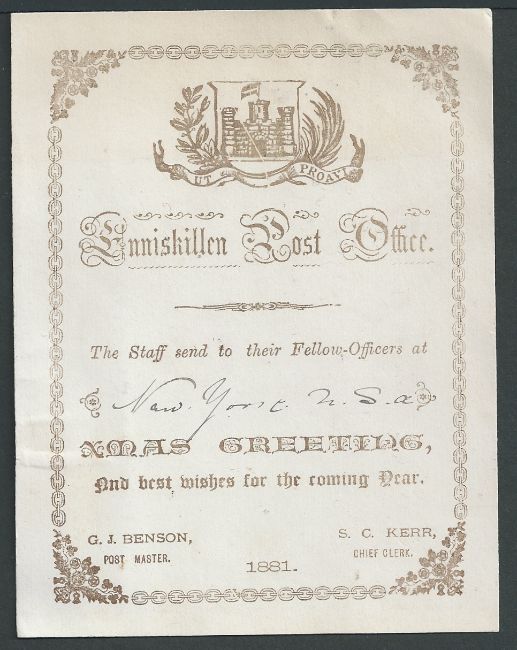 UT PROAVI
Enniskillen Post Office.
The Staff send to their Fellow-Officers at
New York. U. S. a
XMAS GREETING,
And best wishes for the coming Year.
G. J. BENSON,
POST MASTER.
S. C. KERR,
CHIEF CLERK.
1881.